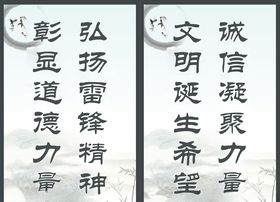 弘扬雷锋精神
彰显道德力量
诚信凝聚力量
文明诞生希望